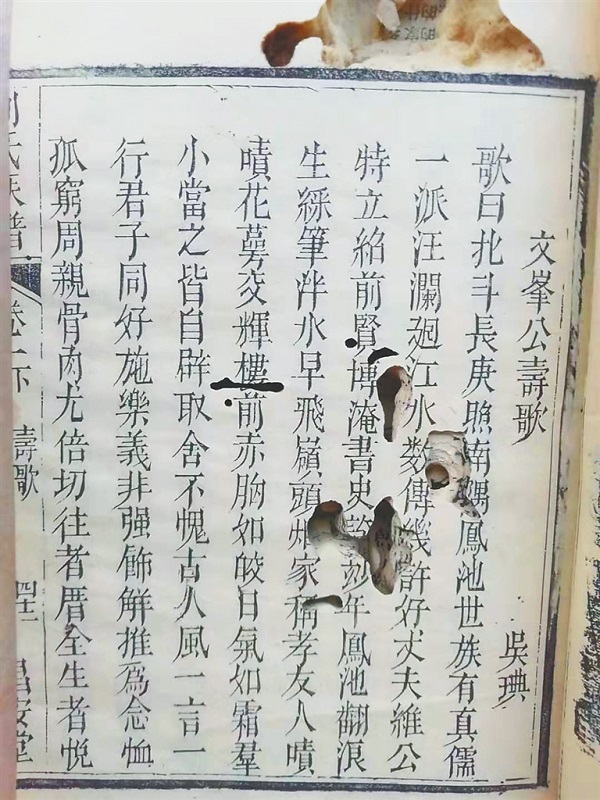 文峯公壽歌 吳琠
歌曰北斗長庚照南隅鳳池世族有真儒
一派汪瀾廻江水數傳幾許好丈夫維公
特立紹前賢博淹書史妙年鳳池翻浪
生綵筆泮水早飛嶺頭家稱孝友人嘖
嘖花萼交輝樓前赤胸如皎日氣如霜羣
小當之皆自辟取舍不愧古人風一言一
行君子同好施樂義非强飾解推爲念恤
孤窮周親骨肉尤倍切往者厝全生者悅
氏族譜 卷二下 壽歌 四十二 安堂